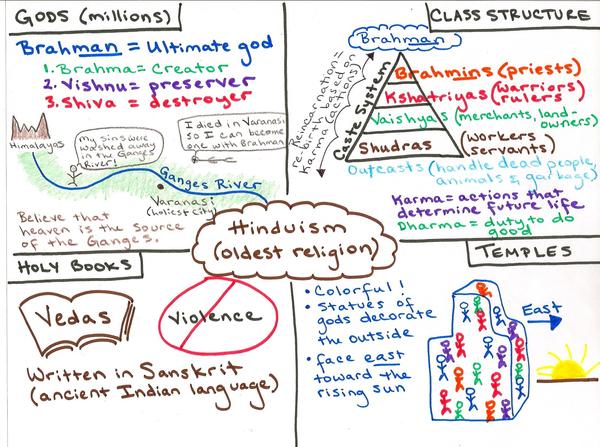 GODS (millions)
Brahman = Ultimate god
1. Brahma = Creator
2. Vishnu = preserver
3. Shiva = destroyer
Himalayas
My sins were
washed away
in the Ganges
River!
I died in Varanasi
so I can become
one with Brahman
Ganges River
Varanasi
(holiest city)
Believe that
heaven is the source
of the Ganges.
CLASS STRUCTURE
Brahman
Reincarnation =
re-birth based on
Karma (actions)
Caste System
Brahmins (priests)
Kshatriyas (warriors)
rulers
Vaishyas (merchants, land-
owners)
Shudras (workers)
(servants)
Outcasts (handle dead people,
animals & garbage)
Karma = actions that
determine future life
Dharma = duty to do
good
Hinduism
(oldest religion)
HOLY BOOKS
Vedas
Violence
Written in Sanskrit
(ancient Indian language)
TEMPLES
• Colorful!
• Statues of
gods decorate
the outside
• face east
toward the
rising sun
East